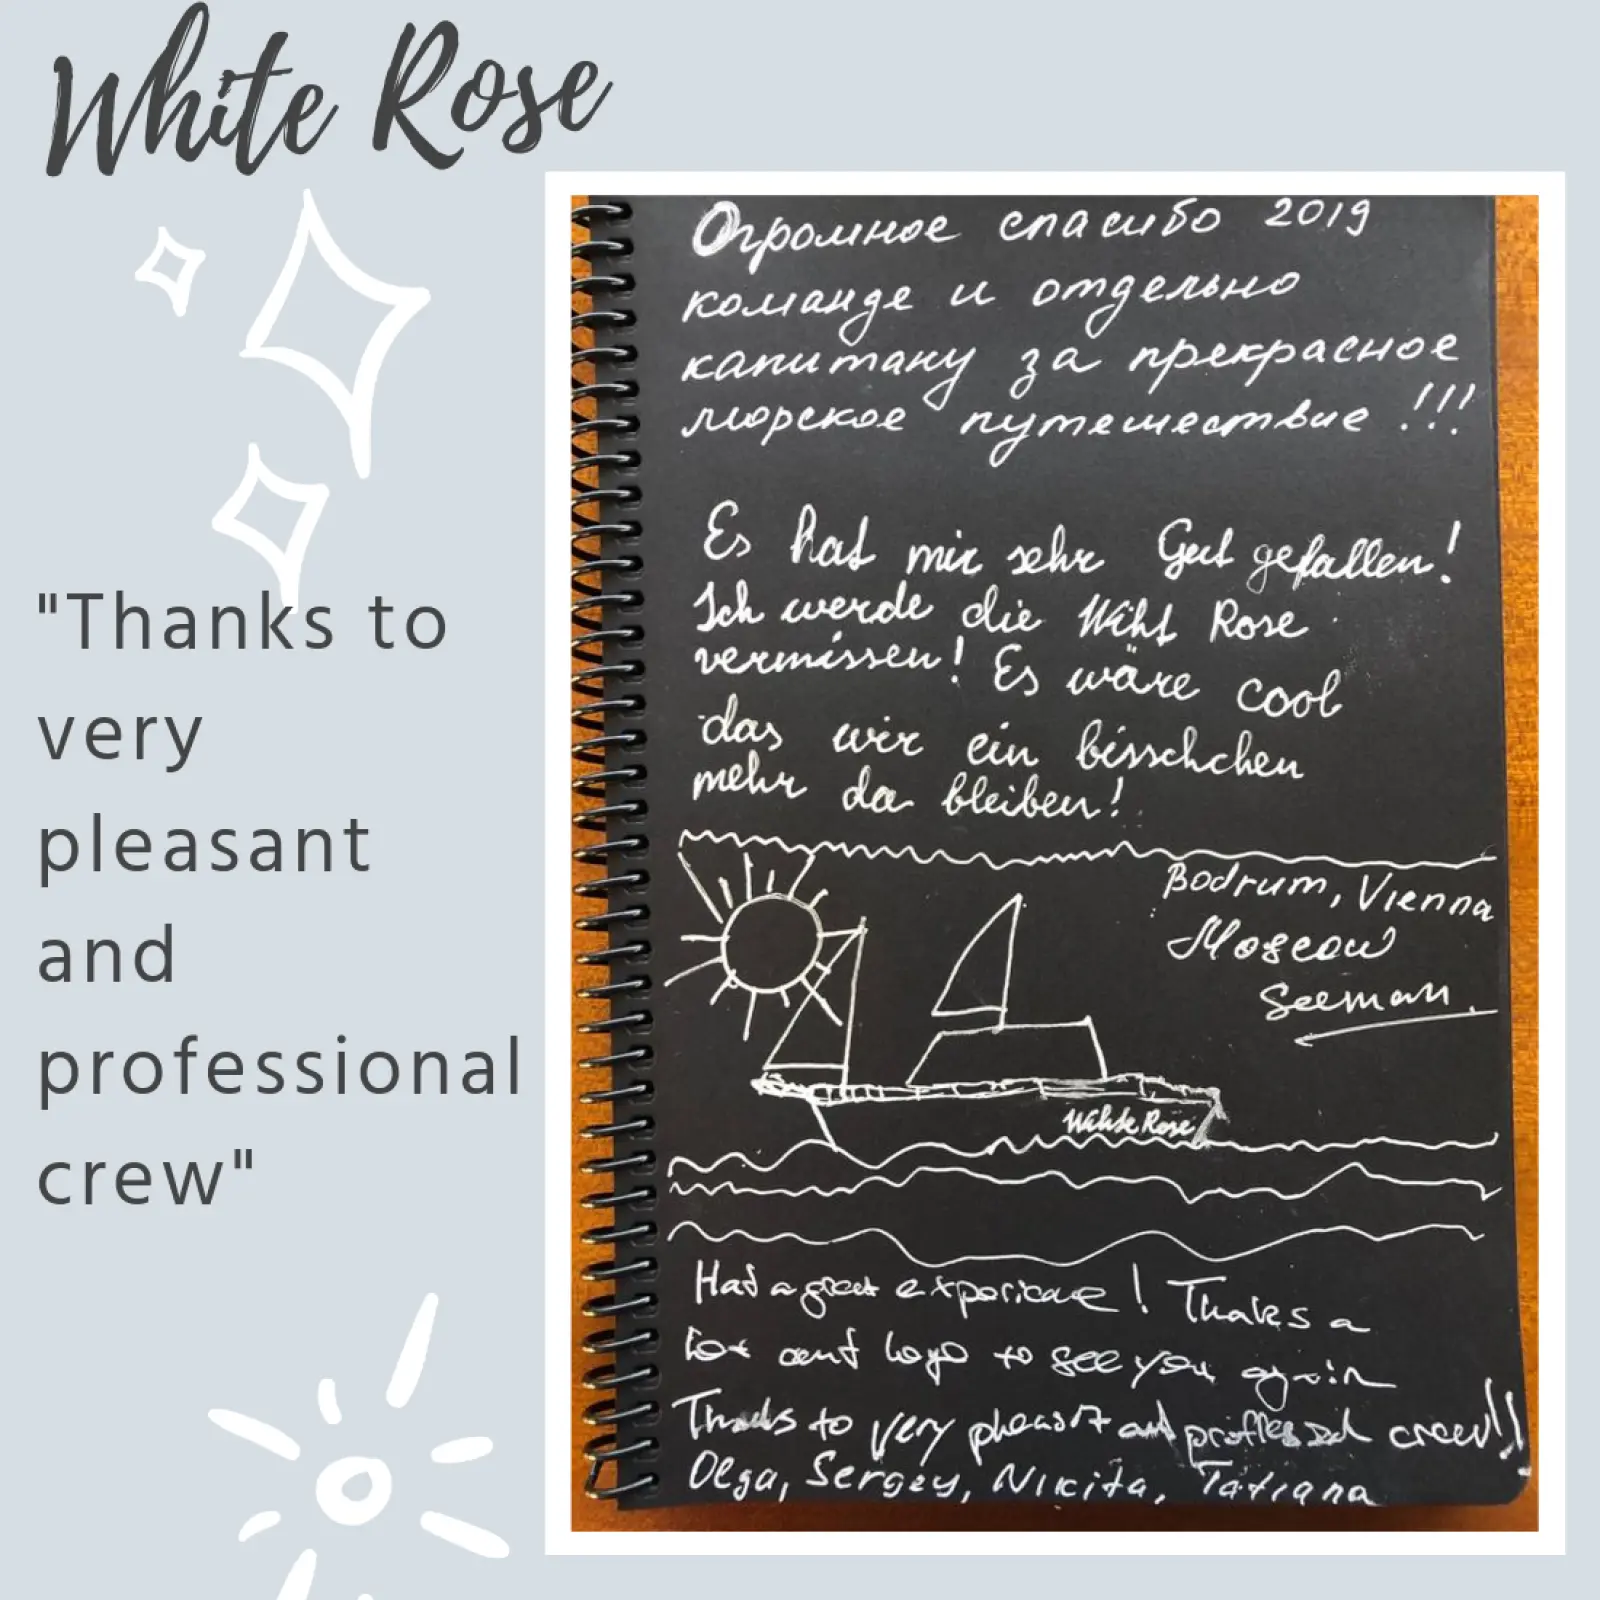 White Rose
"Thanks to
very
pleasant
and
professional
crew"
Огромное спасибо 2019
команде и отдельно
капитану за прекрасное
морское путешествие !!!
Es hat mir sehr Gut gefallen!
Ich werde die Wiht Rose
vermissen! Es wäre cool
das wir ein bisschchen
mehr da bleiben!
Bodrum, Vienna
Moscow
Seeman.
Wihte Rose
Had a great experience! Thanks a
lot and hope to see you again
Thanks to very pleasant and crew!!
Olga, Sergey, Nikita, Tatiana